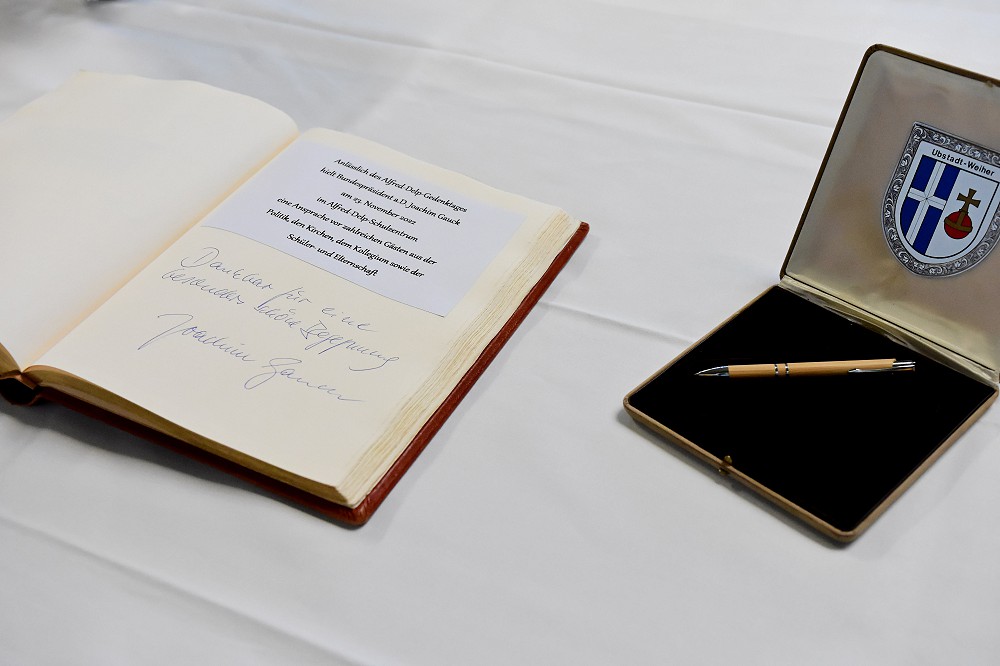 Anlässlich des Alfred-Delp-Gedenktages
hielt Bundespräsident a.D. Joachim Gauck
am 23. November 2022
im Alfred-Delp-Schulzentrum
eine Ansprache vor zahlreichen Gästen aus der
Politik, den Kirchen, dem Kollegium sowie der
Schüler- und Elternschaft
Dankbar für eine
besonders schöne Begegnung
Joachim Gauck
Ubstadt-Weiher